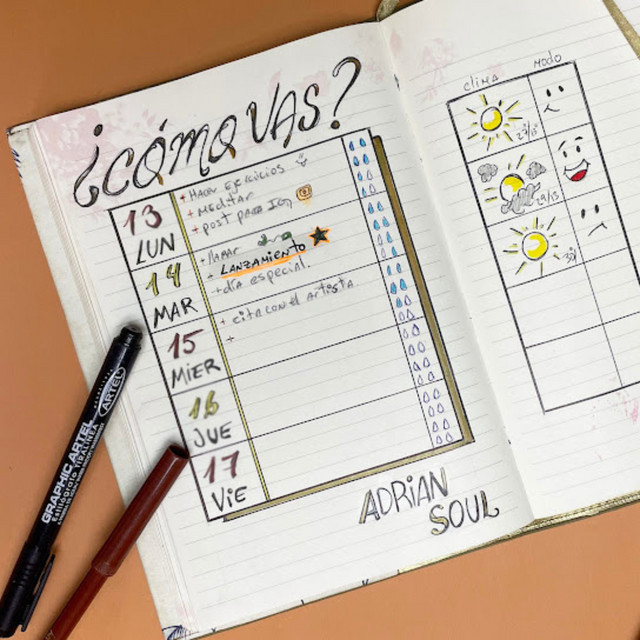 ¿CÓMO VAS?
13
LUN
+ HACER EJERCICIOS
+ MEDITAR
+ POST PARA IG
14
MAR
+ LANZAMIENTO
+ día especial.
15
MIER
+ cita con el artista
+
16
JUE
17
VIE
ADRIAN
SOUL
CLIMA
MODO
23/13
29/13
30
GRAPHIC ARTEL
ARTEL